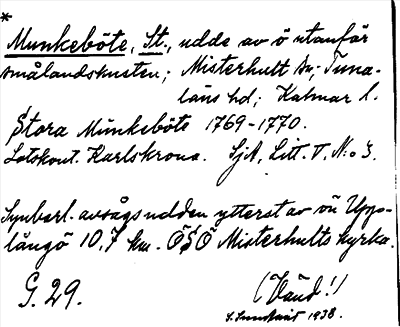 *
Munkeböte, St., udde av ö utanför
smålandskusten; Misterhult sn; Tuna-
läns hd; Kalmar l.
Stora Munkeböte 1769-1770.
Lotskont. Karlskrona. SjA, Litt. V, N:o 3.
Synbarl. avsågs udden ytterst av ön Upp-
långö 10,7 km. ÖSÖ Misterhults kyrka.
G. 29.
(Vänd!)
1938.